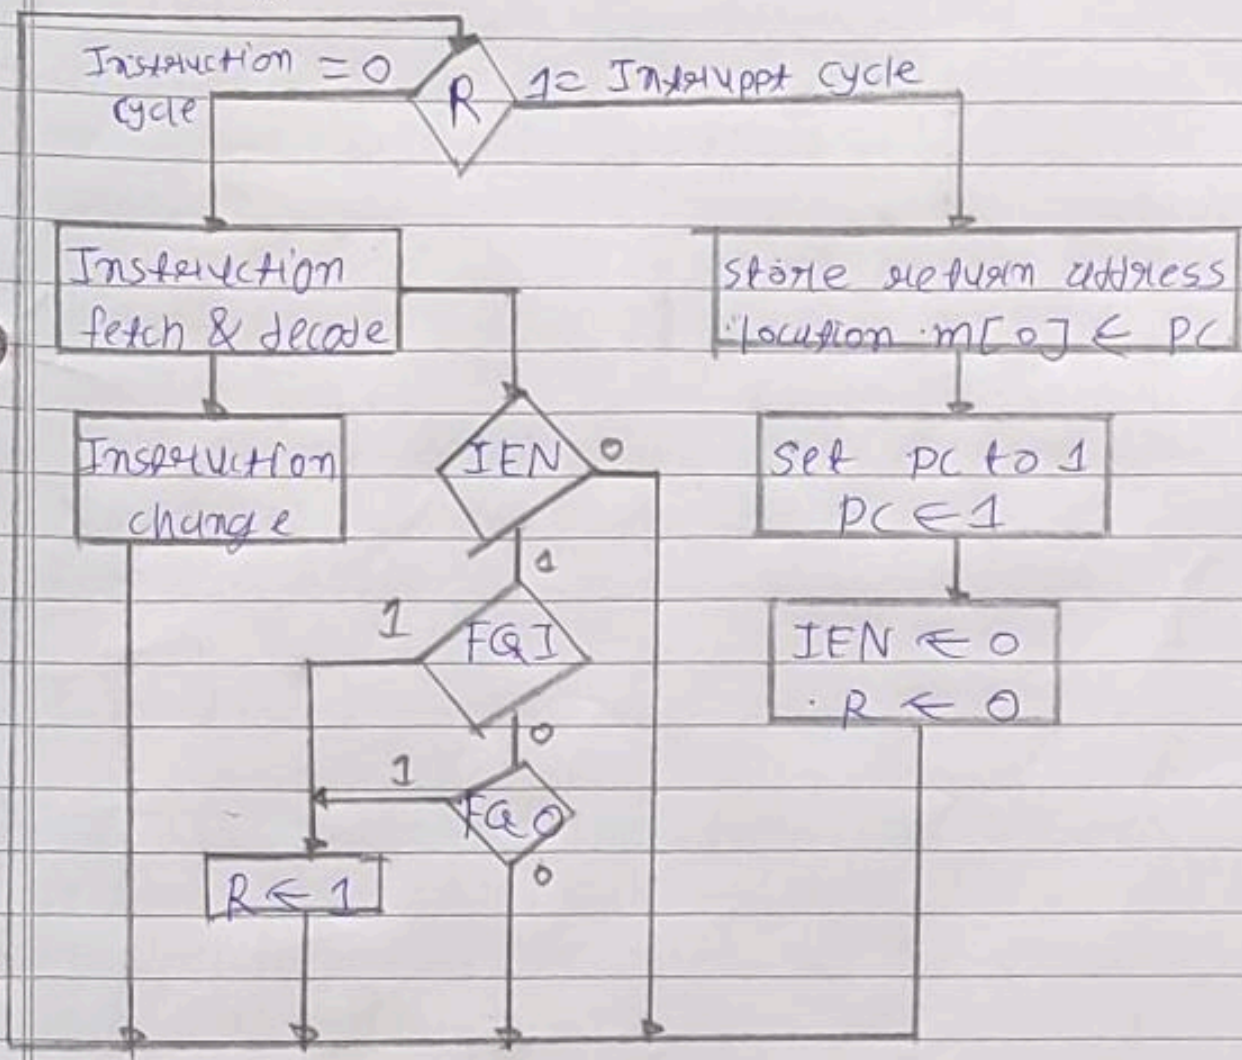 Instruction = 0
cycle
R
1= Interuppt cycle
Instruction
fetch & decode
Store return address
location m[0] ← PC
Instruction
change
IEN
0
Set PC to 1
PC ← 1
1
1
FGI
IEN ← 0
R ← 0
0
1
FGO
0
R ← 1